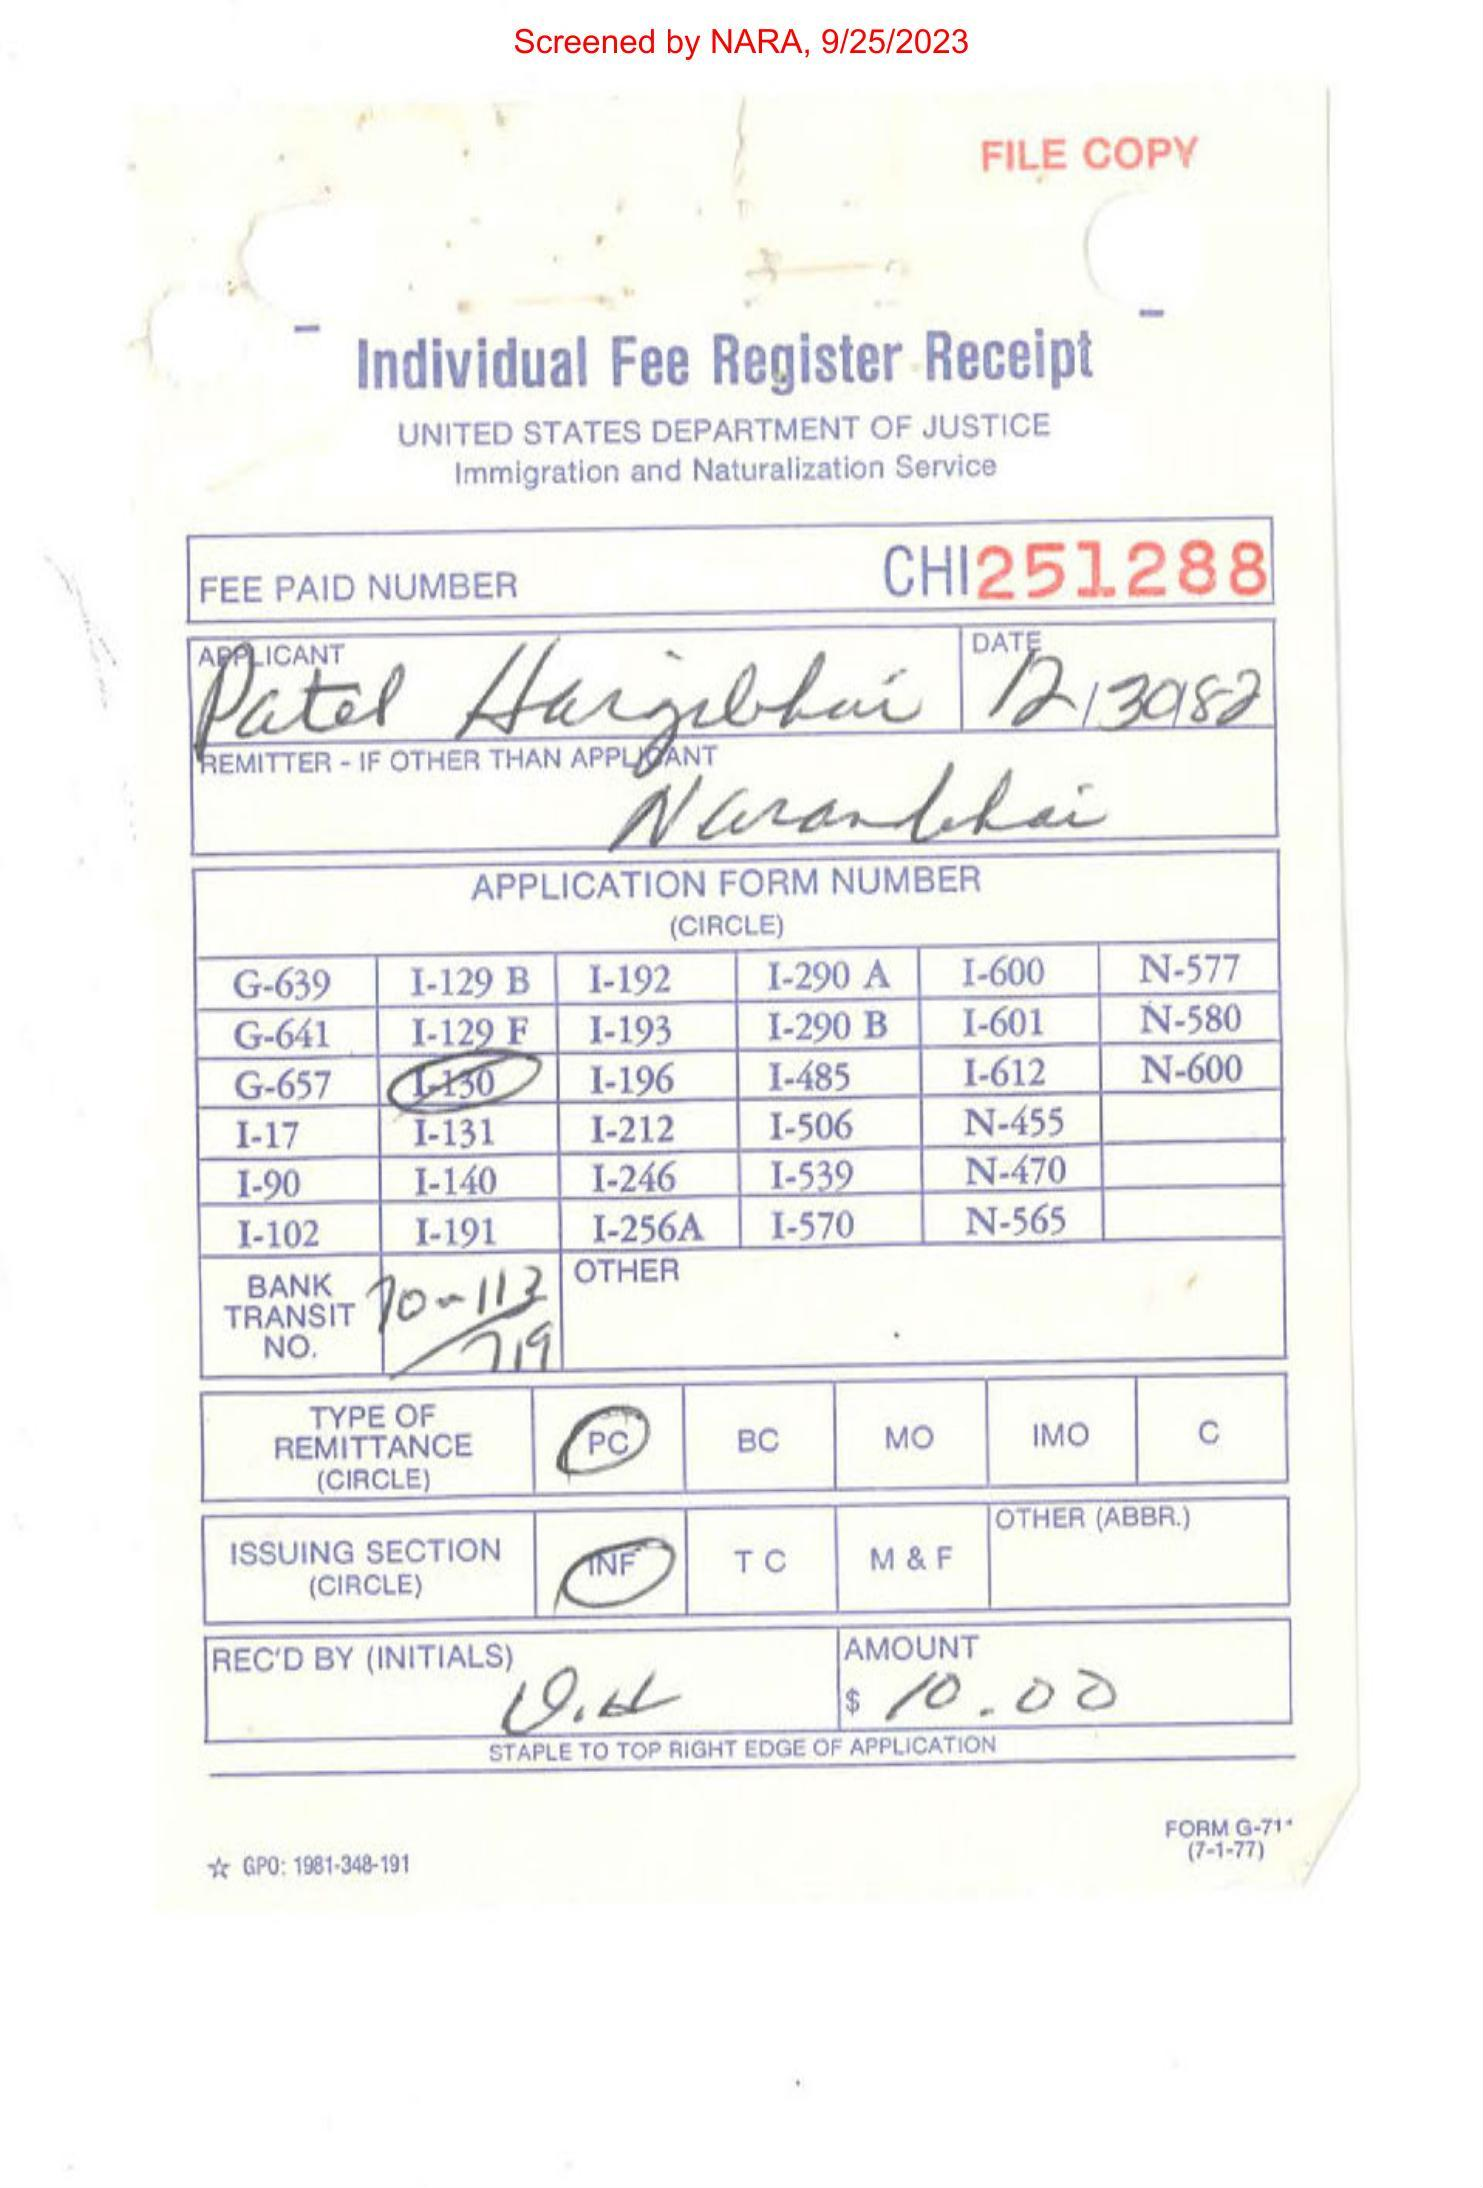 Screened by NARA, 9/25/2023
FILE COPY
Individual Fee Register Receipt
UNITED STATES DEPARTMENT OF JUSTICE
Immigration and Naturalization Service
FEE PAID NUMBER CHI 251288
APPLICANT DATE
Patel 12/30/82
REMITTER - IF OTHER THAN APPLICANT
Naranbhai
APPLICATION FORM NUMBER
(CIRCLE)
G-639 I-129 B I-192 I-290 A I-600 N-577
G-641 I-129 F I-193 I-290 B I-601 N-580
G-657 I-130 I-196 I-485 I-612 N-600
I-17 I-131 I-212 I-506 N-455
I-90 I-140 I-246 I-539 N-470
I-102 I-191 I-256A I-570 N-565
BANK TRANSIT NO. 70-113/719 OTHER
TYPE OF REMITTANCE (CIRCLE) PC BC MO IMO C
ISSUING SECTION (CIRCLE) INF T C M & F OTHER (ABBR.)
REC'D BY (INITIALS) AMOUNT
$ 10.00
STAPLE TO TOP RIGHT EDGE OF APPLICATION
FORM G-711
(7-1-77)
☆ GPO: 1981-348-191